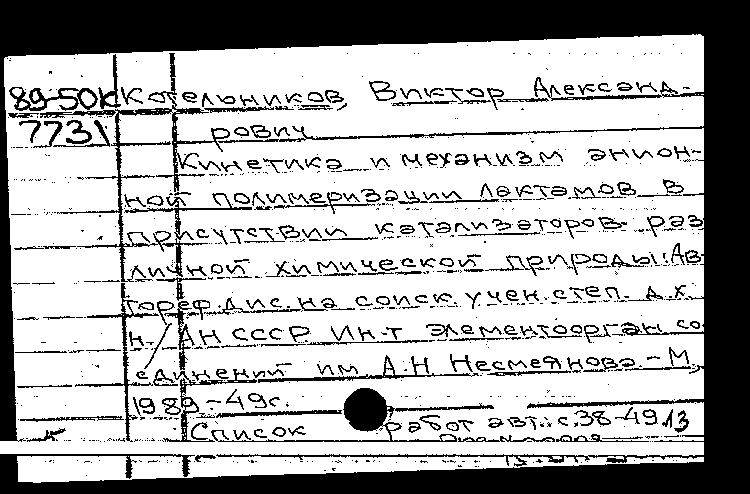 89-50к Котельников, Виктор Александ-
7731 рович
Кинетика и механизм анион-
ной полимеризации лактамов в
присутствии катализаторов раз
личной химической природы: Ав-
тореф. дис. на соиск. учен. степ. д.х.
н. / АН СССР Ин-т элементоорган. со
единений им. А.Н Несмеянова. - М.,
1989 - 49с.
Список работ авт.: с.38-49